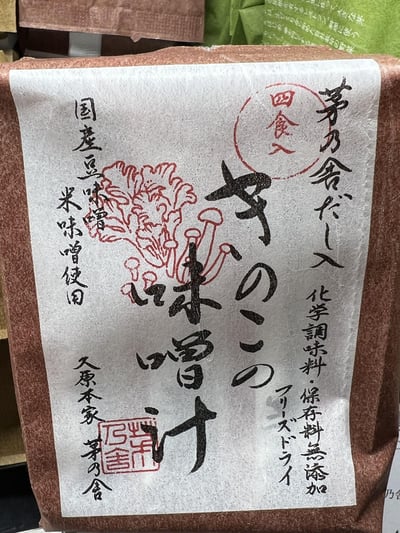 茅乃舎だし入
四食入
化学調味料・保存料無添加
フリーズドライ
きのこの
味噌汁
国産豆味噌
米味噌使用
久原本家 茅乃舎
茅乃舎